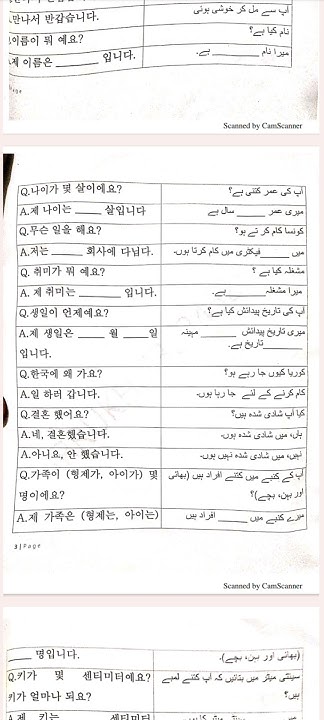 .만나서 반갑습니다.
آپ سے مل کر خوشی ہوئی
.이름이 뭐 예요?
نام کیا ہے؟
.제 이름은 _____ 입니다.
میرا نام _____ ہے۔
Scanned by CamScanner
Q.나이가 몇 살이에요?
آپ کی عمر کتنی ہے؟
A.제 나이는 _____ 살입니다
میری عمر _____ سال ہے
Q.무슨 일을 해요?
کونسا کام کر تے ہو؟
A.저는 _____ 회사에 다닙다.
میں _____ فیکٹری میں کام کرتا ہوں۔
Q. 취미가 뭐 예요?
مشغلہ کیا ہے ؟
A. 제 취미는 _____ 입니다.
میرا مشغلہ _____ ہے۔
Q.생일이 언제예요?
آپ کی تاریخ پیدائش کیا ہے؟
A.제 생일은 _____ 월 _____ 일
입니다.
میری تاریخ پیدائش _____ مہینہ
_____ تاریخ ہے۔
Q.한국에 왜 가요?
کوریا کیوں جا رہے ہو؟
A.일 하러 갑니다.
کام کرنے کے لئے جا رہا ہوں۔
Q.결혼 했어요?
کیا آپ شادی شدہ ہیں؟
A.네, 결혼했습니다.
ہاں، میں شادی شدہ ہوں۔
A.아니요, 안 했습니다.
نہیں، میں شادی شدہ نہیں ہوں۔
Q.가족이 (형제가, 아이가) 몇
명이에요?
آپ کے کنبے میں کتنے افراد ہیں (بھائی
اور بہن، بچے)؟
A.제 가족은 (형제는, 아이는)
میرے کنبے میں _____ افراد ہیں
3 | Page
Scanned by CamScanner
_____ 명입니다.
(بھائی اور بہن، بچے)۔
Q.키가 몇 센티미터예요?
키가 얼마나 되요?
سینٹی میٹر میں بتائیں کہ آپ کتنے لمبے
ہیں؟
A.제 키는 _____ 센티미터